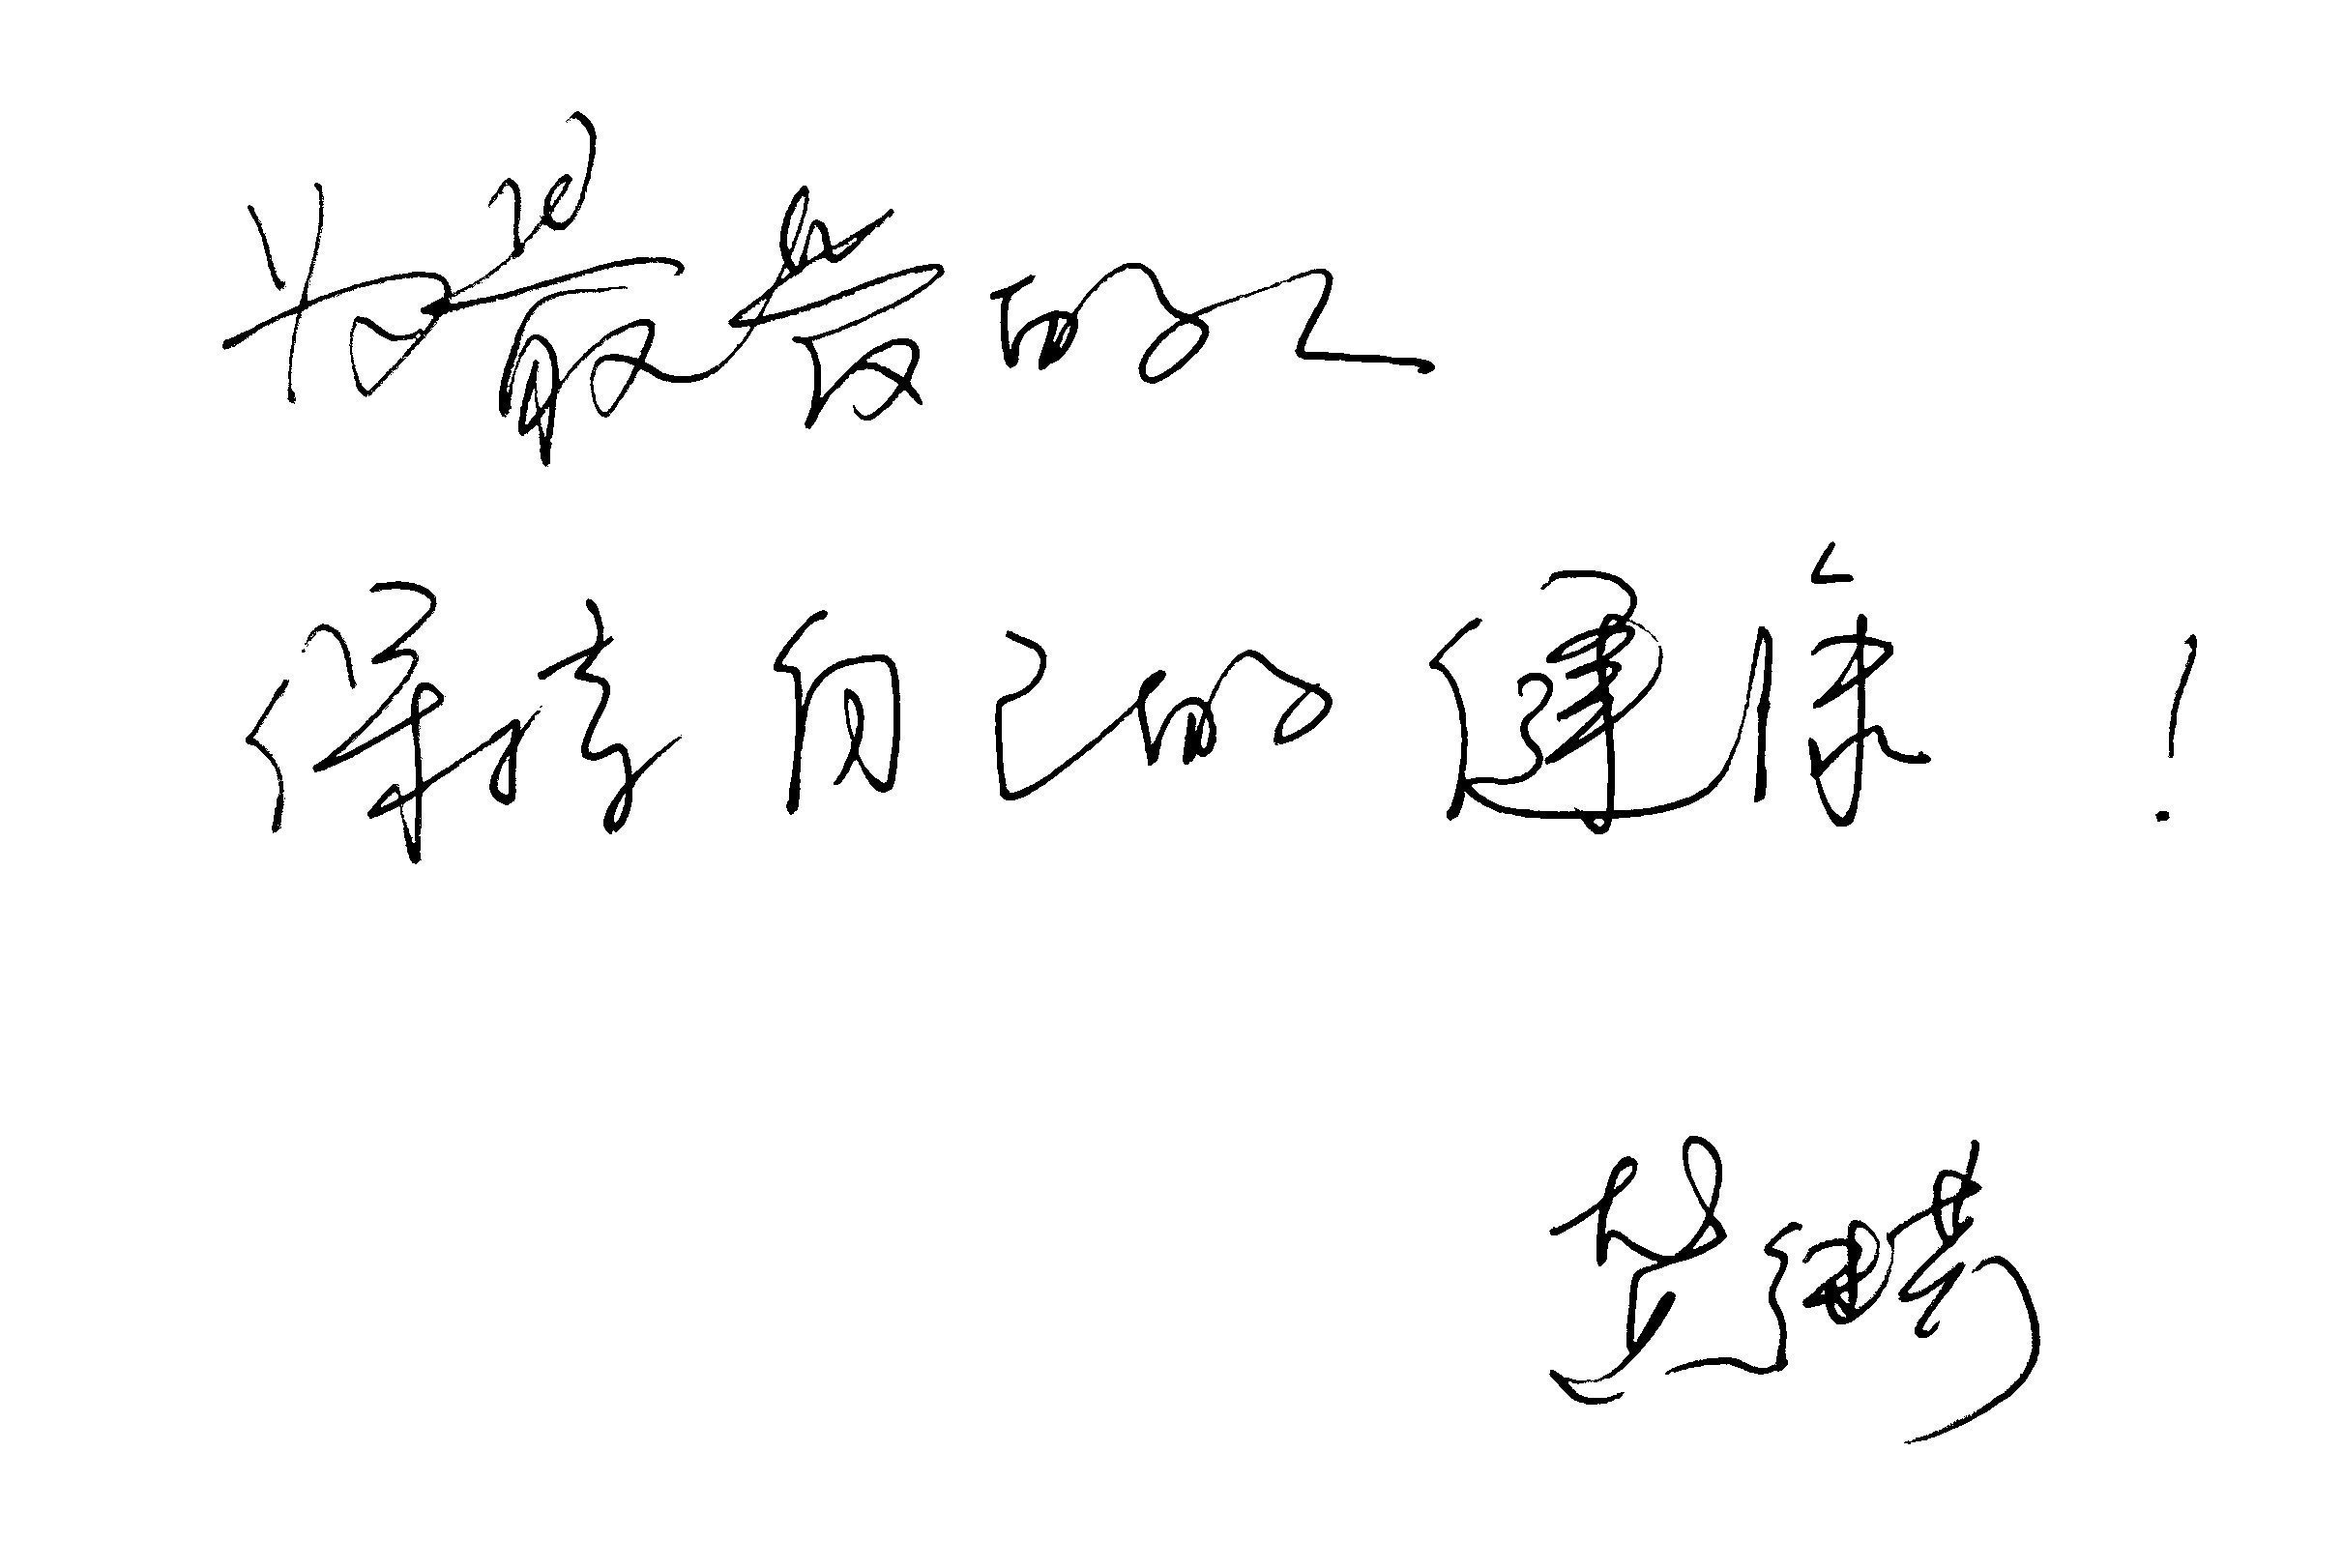 为最爱的人
保持自己的健康！